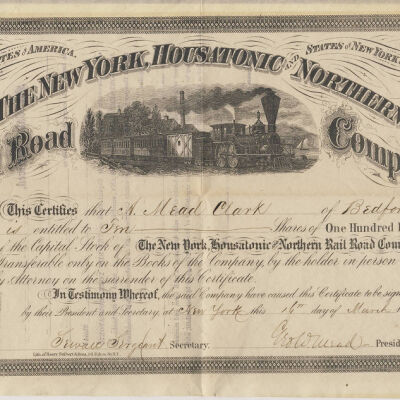 TES OF AMERICA.
STATES OF NEW YORK
THE NEW YORK, HOUSATONIC AND NORTHERN
Road Comp
This Certifies that A. Mead Clark of Bedfor
is entitled to Ten Shares of One Hundred
the Capital Stock of The New York, Housatonic and Northern Rail Road Com
Transferable only on the Books of the Company, by the holder in person
y Attorney on the surrender of this Certificate.
In Testimony Whereof, the said Company have caused this Certificate to be sign
by their President and Secretary, at New York this 16th day of March 1
Secretary.
Geo W Mead Presi